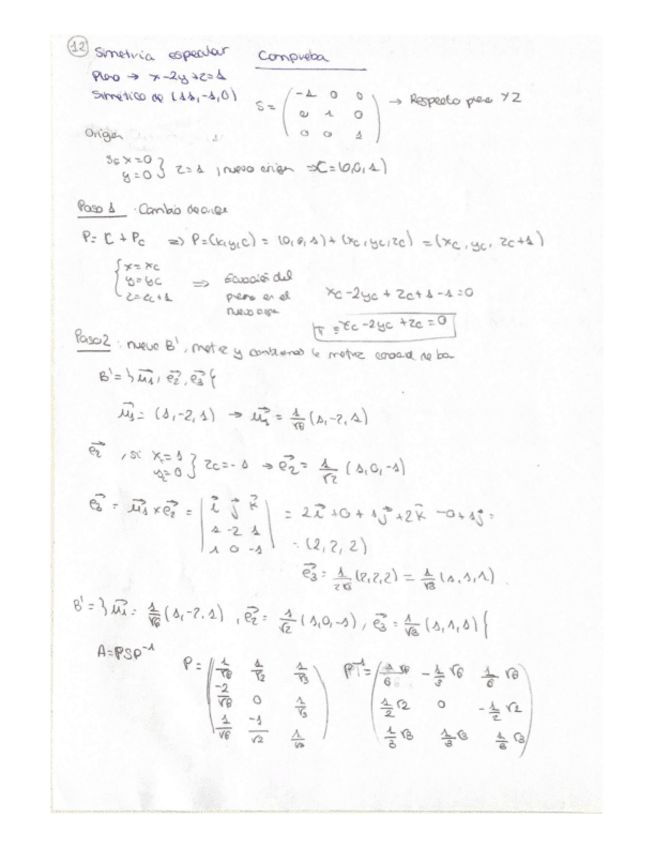 12 Simetría especular Comprueba
Plano → x-2y+z=1
Simétrico de (11,-1,0) S= (-1 0 0 / 0 1 0 / 0 0 1) → Respecto plano YZ
Origen
Si x=0 y=0 } z=1 , nuevo origen ⇒ C=(0,0,1)
Paso 1 Cambio de origen
P= C + Pc ⇒ P=(x,y,z) = (0,0,1) + (xc,yc,zc) = (xc, yc, zc+1)
{ x=xc y=yc z=zc+1 ⇒ Ecuación del plano en el nuevo origen xc-2yc+zc+1-1=0
π ≡ xc-2yc+zc=0
Paso 2 : nuevo B', matriz y
B'= } u1, e2, e3 {
u1= (1,-2,1) → u1= 1/√6 (1,-2,1)
e2 , si x=1 y=0 } zc=-1 → e2= 1/√2 (1,0,-1)
e3= u1 x e2 = | i j k / 1 -2 1 / 1 0 -1 | = 2i+0+1j+2k-0+1j=
= (2,2,2)
e3= 1/2√3 (2,2,2) = 1/√3 (1,1,1)
B'= } u1= 1/√6 (1,-2,1) , e2= 1/√2 (1,0,-1) , e3= 1/√3 (1,1,1) {
A=PSP⁻¹
P= (1/√6 1/√2 1/√3 / -2/√6 0 1/√3 / 1/√6 -1/√2 1/√3) P⁻¹= (1/6 √6 -1/3 √6 1/6 √6 / 1/2 √2 0 -1/2 √2 / 1/3 √3 1/3 √3 1/3 √3)